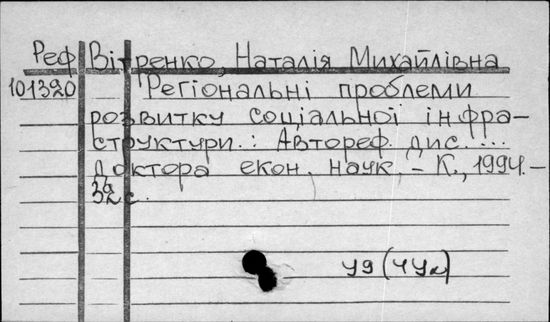 Реф Вітренко, Наталія Михайлівна
101320 Регіональні проблеми
розвитку соціальної інфра-
структури.: Автореф. дис. ...
доктора екон. наук. - К., 1994. -
32 с.
У9(4Ук)